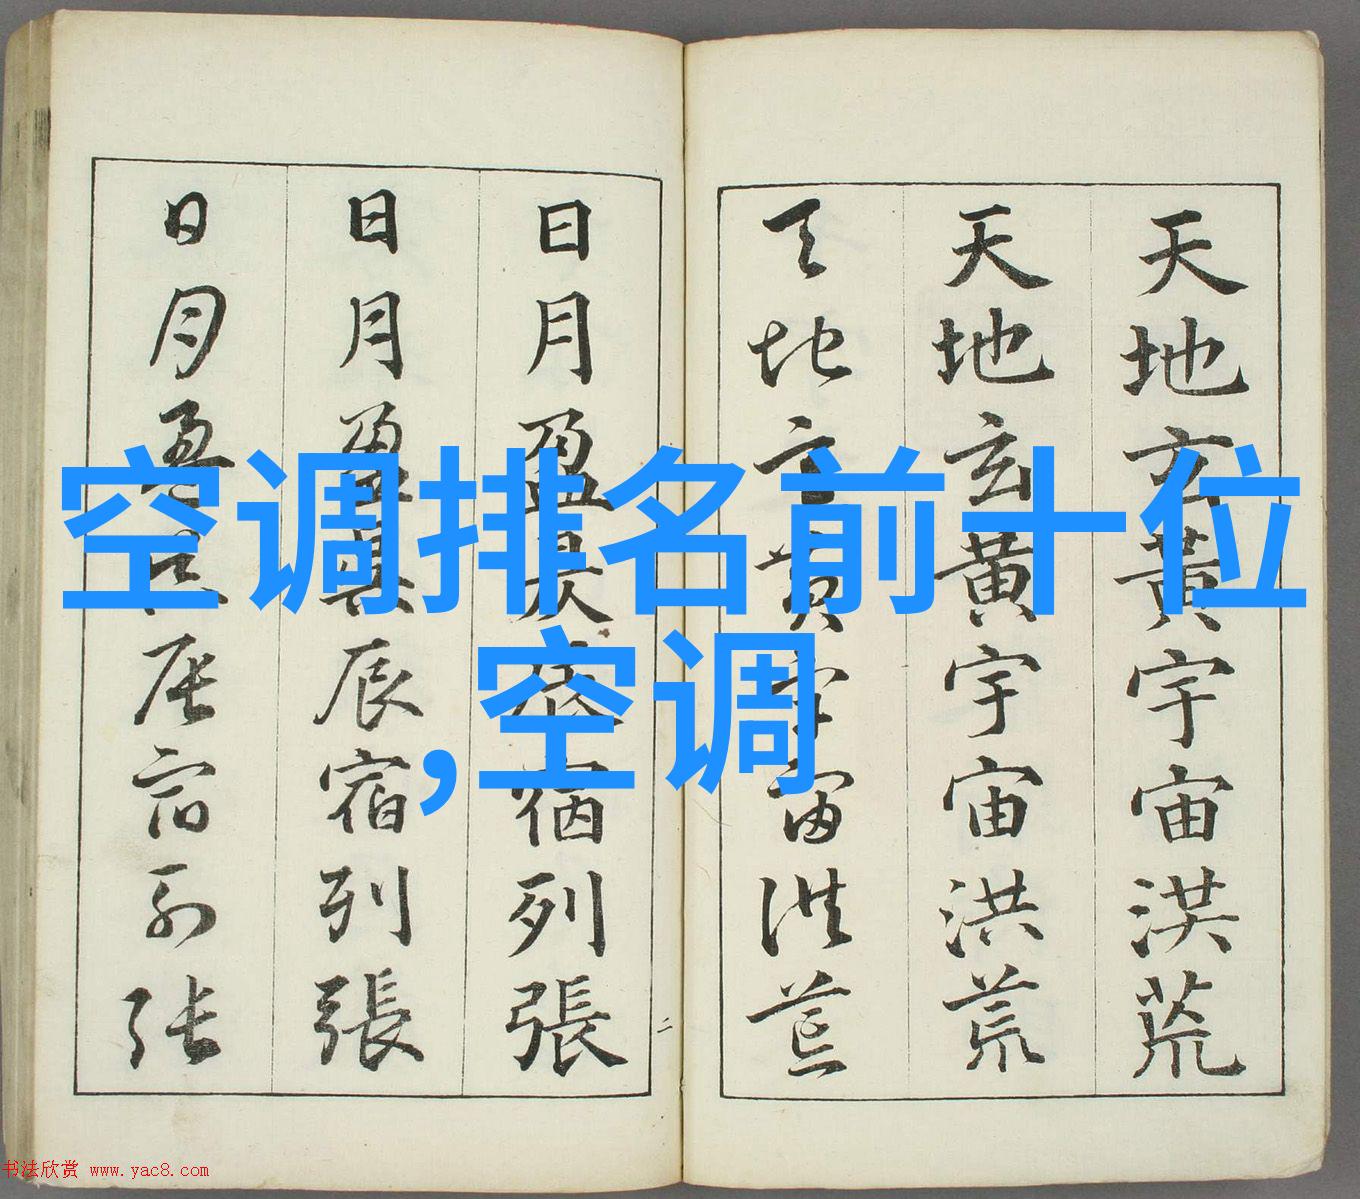 天地玄黃宇宙洪荒
天地玄黃宇宙洪荒
天地玄黃宇宙洪荒
日月盈昃辰宿列張
日月盈昃辰宿列張
日月盈昃辰宿列張
二
空调排名前十位
,空调
书法欣赏 www.yac8.com